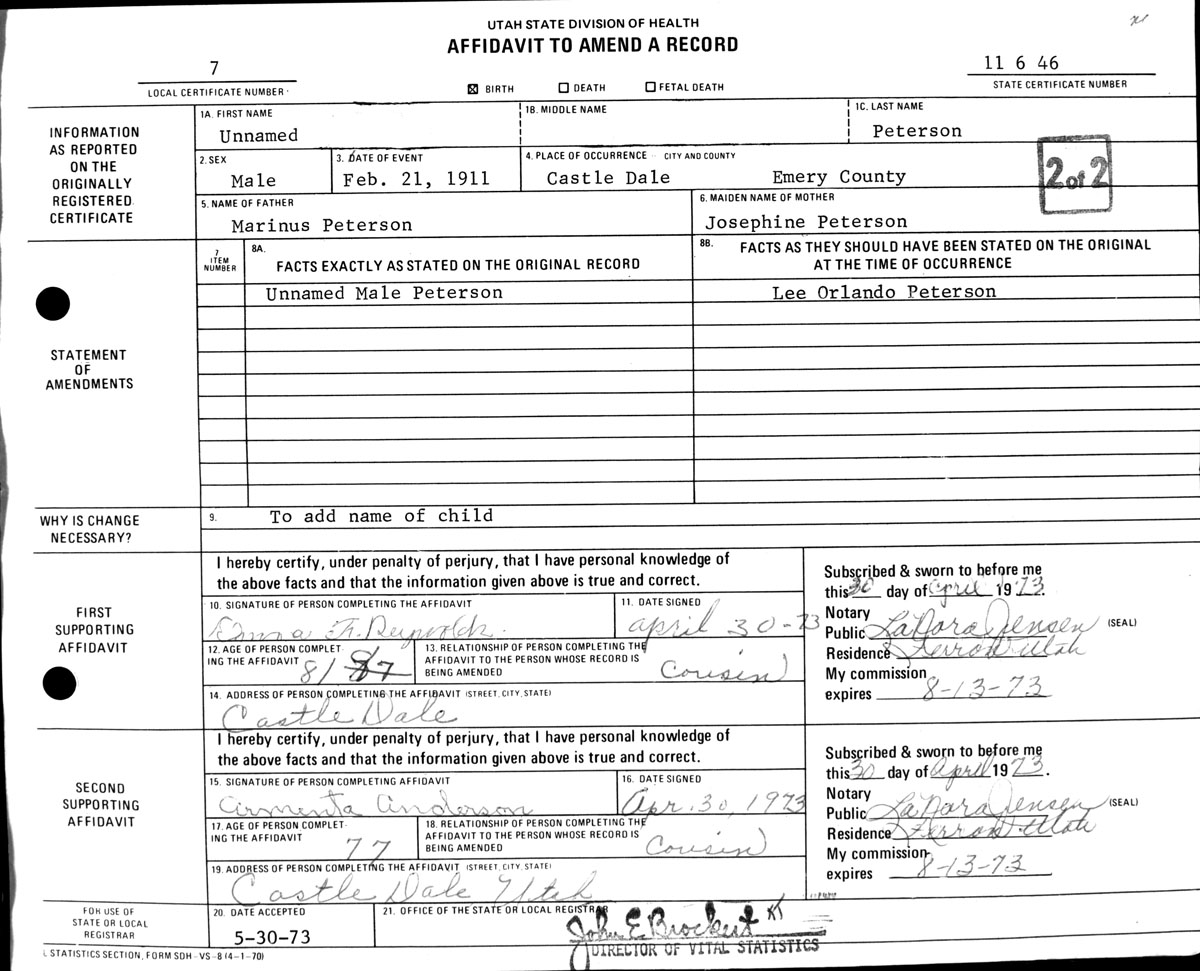 UTAH STATE DIVISION OF HEALTH
AFFIDAVIT TO AMEND A RECORD
7
LOCAL CERTIFICATE NUMBER
☒ BIRTH ☐ DEATH ☐ FETAL DEATH
11 6 46
STATE CERTIFICATE NUMBER
INFORMATION AS REPORTED ON THE ORIGINALLY REGISTERED CERTIFICATE
1A. FIRST NAME 1B. MIDDLE NAME 1C. LAST NAME
Unnamed Peterson
2. SEX 3. DATE OF EVENT 4. PLACE OF OCCURRENCE CITY AND COUNTY
Male Feb. 21, 1911 Castle Dale Emery County
2 of 2
5. NAME OF FATHER 6. MAIDEN NAME OF MOTHER
Marinus Peterson Josephine Peterson
STATEMENT OF AMENDMENTS
7 ITEM NUMBER
8A. FACTS EXACTLY AS STATED ON THE ORIGINAL RECORD
8B. FACTS AS THEY SHOULD HAVE BEEN STATED ON THE ORIGINAL
AT THE TIME OF OCCURRENCE
Unnamed Male Peterson Lee Orlando Peterson
WHY IS CHANGE NECESSARY?
9. To add name of child
FIRST SUPPORTING AFFIDAVIT
I hereby certify, under penalty of perjury, that I have personal knowledge of
the above facts and that the information given above is true and correct.
10. SIGNATURE OF PERSON COMPLETING THE AFFIDAVIT 11. DATE SIGNED
Reynolds april 30-73
12. AGE OF PERSON COMPLETING THE AFFIDAVIT 81
13. RELATIONSHIP OF PERSON COMPLETING THE AFFIDAVIT TO THE PERSON WHOSE RECORD IS BEING AMENDED Cousin
14. ADDRESS OF PERSON COMPLETING THE AFFIDAVIT (STREET, CITY, STATE)
Castle Dale
Subscribed & sworn to before me
this 30 day of April 1973.
Notary
Public LaDora Jensen (SEAL)
Residence Ferron Utah
My commission
expires 8-13-73
SECOND SUPPORTING AFFIDAVIT
I hereby certify, under penalty of perjury, that I have personal knowledge of
the above facts and that the information given above is true and correct.
15. SIGNATURE OF PERSON COMPLETING AFFIDAVIT 16. DATE SIGNED
Armenta Anderson Apr. 30, 1973
17. AGE OF PERSON COMPLETING THE AFFIDAVIT 77
18. RELATIONSHIP OF PERSON COMPLETING THE AFFIDAVIT TO THE PERSON WHOSE RECORD IS BEING AMENDED Cousin
19. ADDRESS OF PERSON COMPLETING THE AFFIDAVIT (STREET, CITY, STATE)
Castle Dale Utah
Subscribed & sworn to before me
this 30 day of April 1973.
Notary
Public LaDora Jensen (SEAL)
Residence Ferron Utah
My commission
expires 8-13-73
FOR USE OF STATE OR LOCAL REGISTRAR
20. DATE ACCEPTED 21. OFFICE OF THE STATE OR LOCAL REGISTRAR
5-30-73 John E Brockert
DIRECTOR OF VITAL STATISTICS
STATISTICS SECTION, FORM SDH-VS-8 (4-1-70)